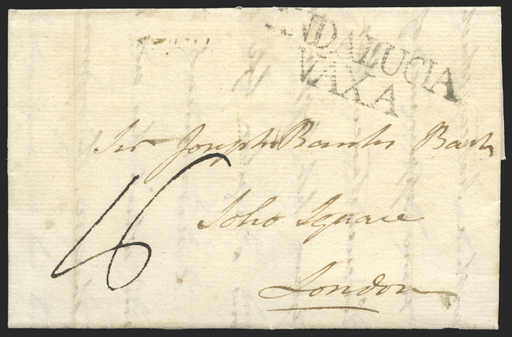 ANDALUCIA
VAXA
Sir Joseph Banks Bart
16
Soho Square
London